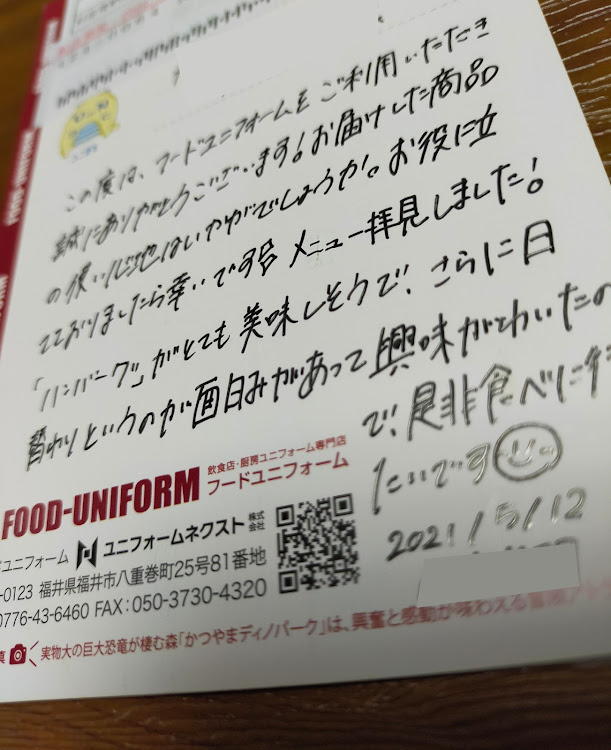 この度は、フードユニフォームをご利用いただき
誠にありがとうございます!お届けした商品
の使い心地はいかがでしょうか。お役に立
てておりましたら幸いです メニュー拝見しました!
「ハンバーグ」がとても美味しそうで、さらに日
替わりというのが面白みがあって興味がわいたの
で、是非食べに行き
たいです
2021/5/12
FOOD-UNIFORM
飲食店・厨房ユニフォーム専門店
フードユニフォーム
ユニフォーム ユニフォームネクスト 株式会社
-0123 福井県福井市八重巻町25号81番地
0776-43-6460 FAX:050-3730-4320
実物大の巨大恐竜が棲む森「かつやまディノパーク」は、興奮と感動が味わえる